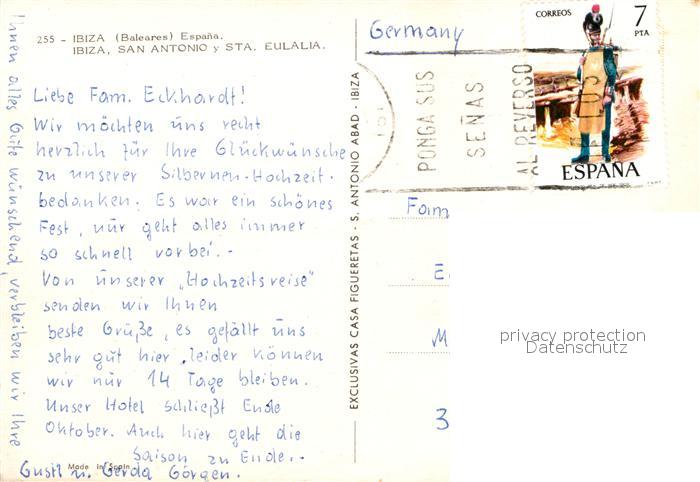 255 - IBIZA (Baleares) España.
IBIZA, SAN ANTONIO y STA. EULALIA.
Liebe Fam. Eckhardt!
Wir möchten üns recht
herzlich für Ihre Glückwünsche
zu unserer Silbernen-Hochzeit.
bedanken. Es war ein schönes
Fest, nür geht alles immer
so schnell vorbei. -
Von ünserer "Hochzeitsreise"
senden wir Ihnen
beste Grüße, es gefällt üns
sehr güt hier, leider können
wir nür 14 Tage bleiben.
Unser Hotel schließt Ende
Oktober. Auch hier geht die
Saison zu Ende. -
Gustl u. Gerda Görgen.
Made in Spain
Ihnen alles Gute wünschend, verbleiben wir Ihre
EXCLUSIVAS CASA FIGUERETAS - S. ANTONIO ABAD - IBIZA
Germany
CORREOS
7
PTA
ESPAÑA
PONGA SUS
SEÑAS
AL REVERSO
Fam
E
M
3
privacy protection
Datenschutz